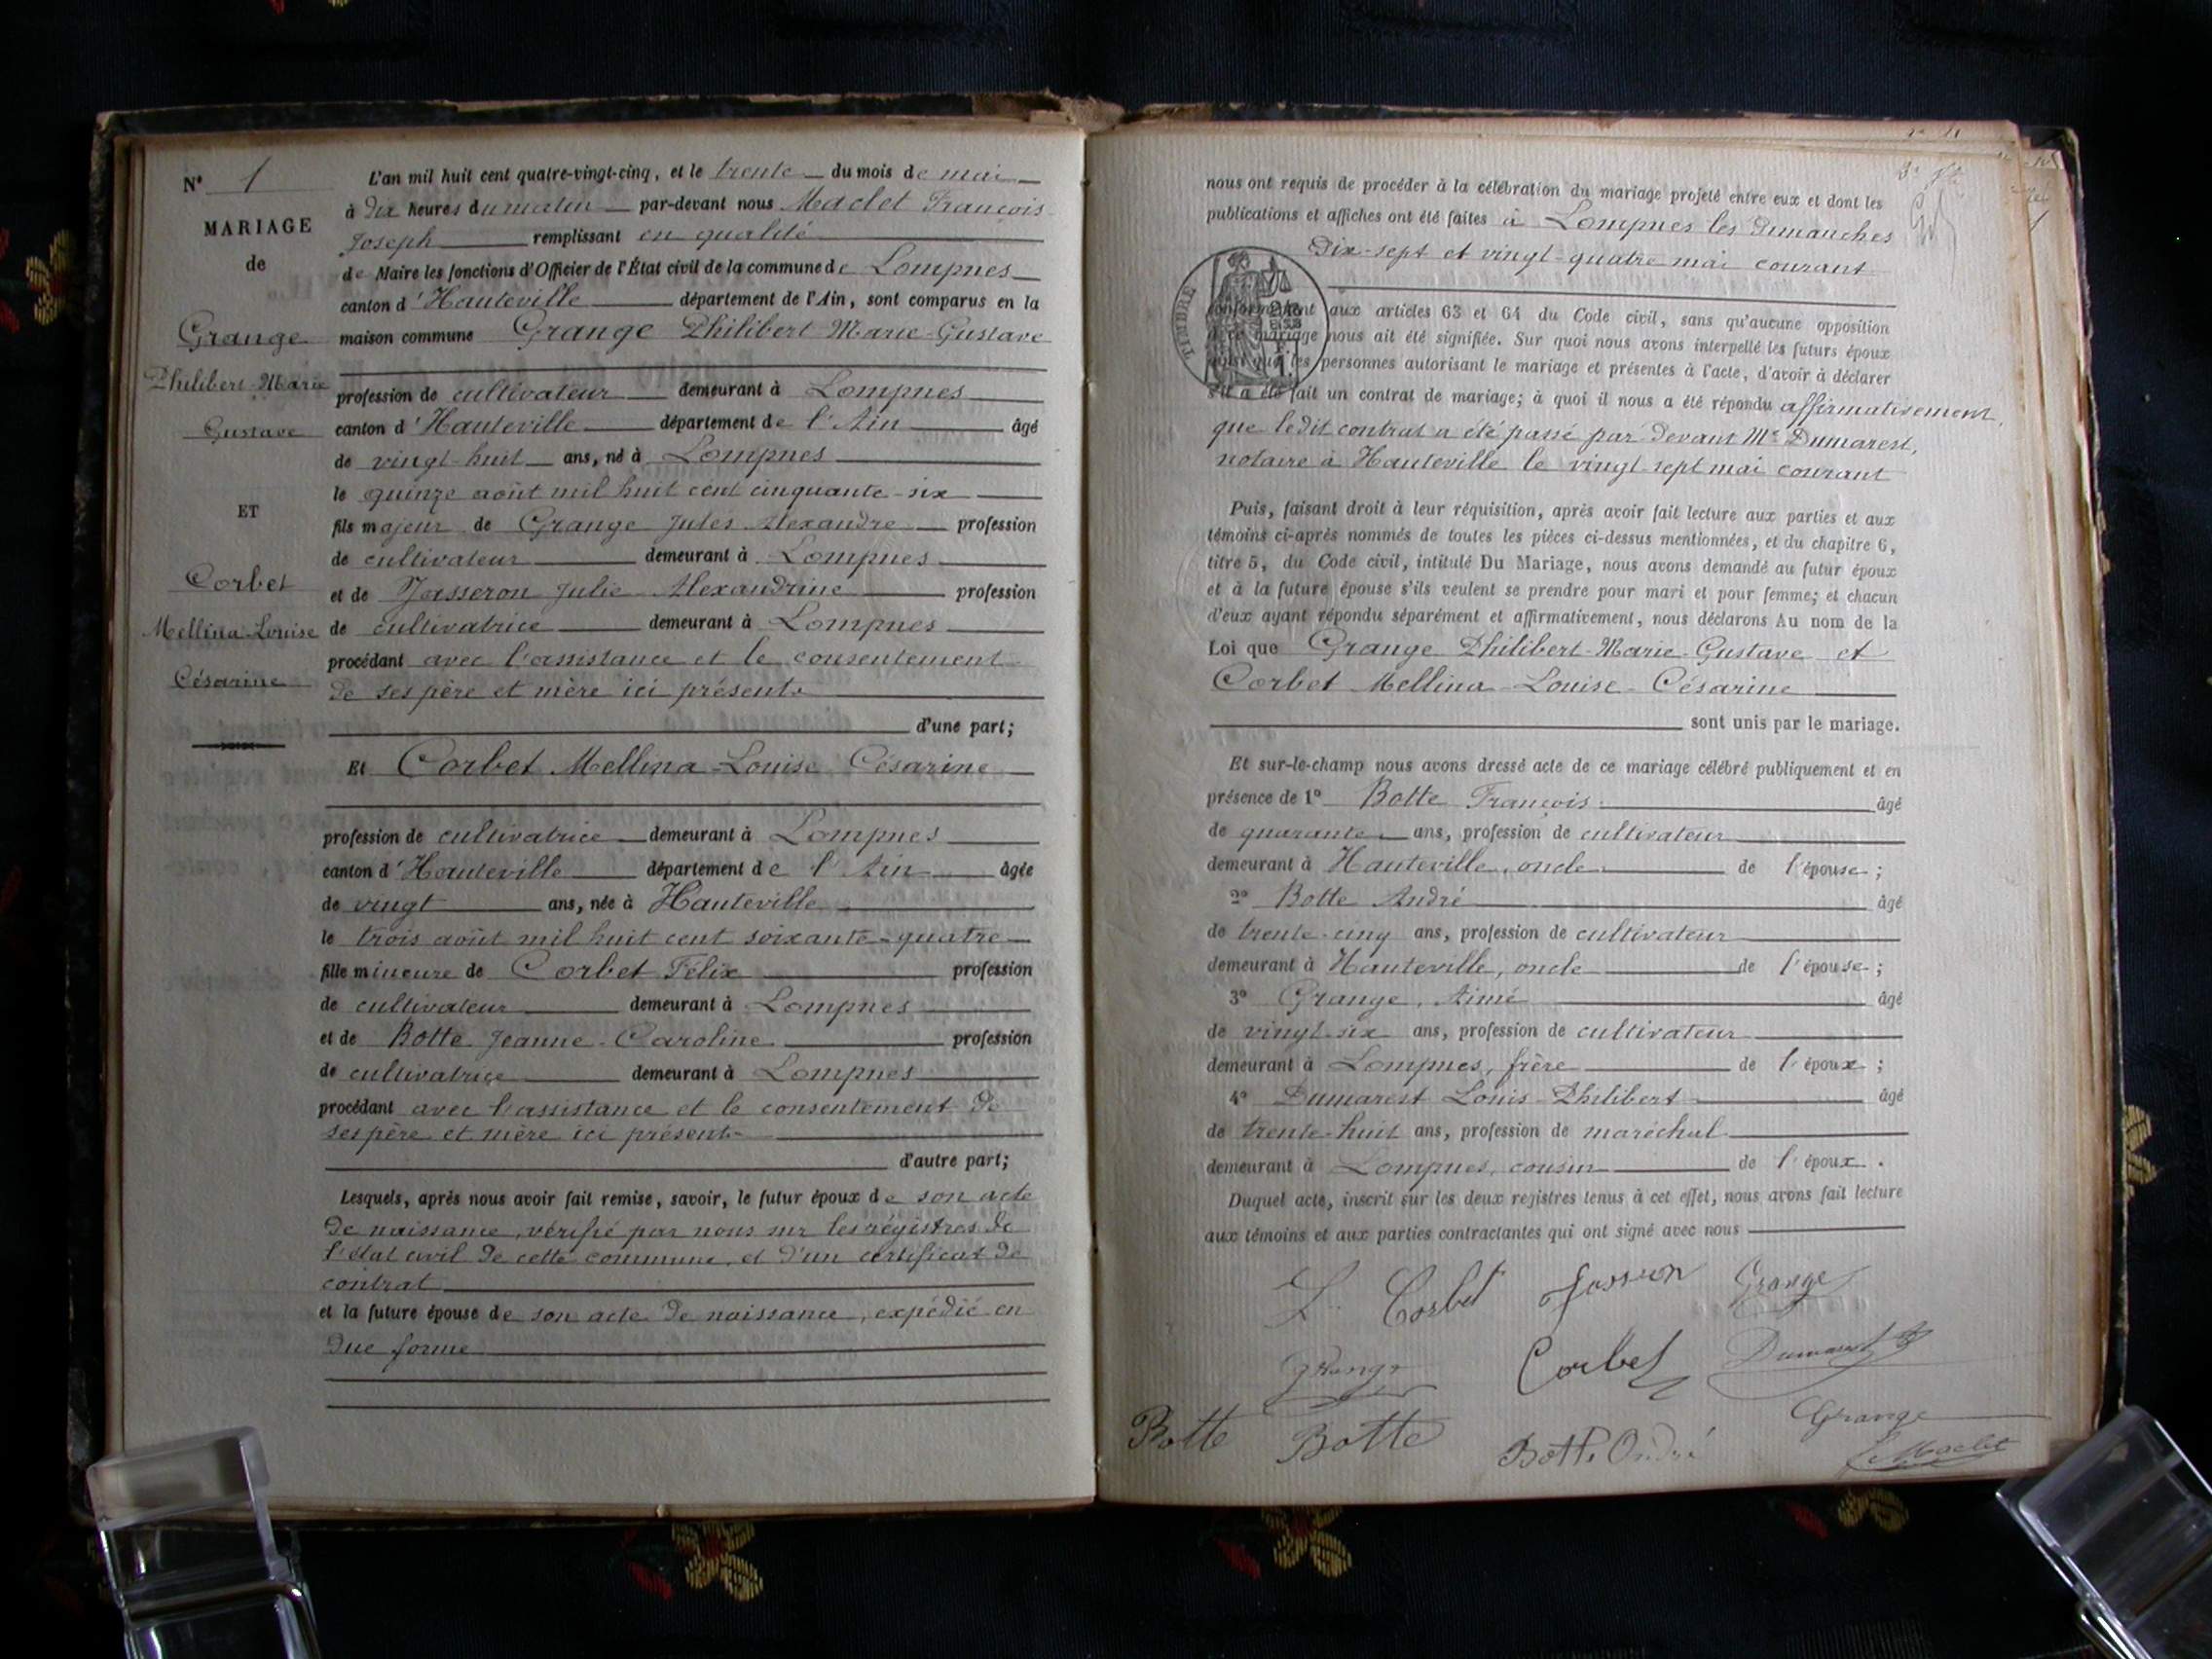 N° 1
MARIAGE
de
Grange
Philibert-Marie
Gustave
ET
Corbet
Mellina-Louise
Césarine
L'an mil huit cent quatre-vingt-cinq, et le trente du mois de mai
à dix heures du matin par-devant nous Maclet François
Joseph remplissant en qualité
de Maire les fonctions d'Officier de l'État civil de la commune de Lompnes
canton d'Hauteville département de l'Ain, sont comparus en la
maison commune Grange Philibert-Marie-Gustave
profession de cultivateur demeurant à Lompnes
canton d'Hauteville département de l'Ain âgé
de vingt-huit ans, né à Lompnes
le quinze août mil huit cent cinquante-six
fils majeur de Grange Jules Alexandre profession
de cultivateur demeurant à Lompnes
et de Jasseron Julie Alexandrine profession
de cultivatrice demeurant à Lompnes
procédant avec l'assistance et le consentement
de ses père et mère ici présents
d'une part;
Et Corbet Mellina-Louise Césarine
profession de cultivatrice demeurant à Lompnes
canton d'Hauteville département de l'Ain âgée
de vingt ans, née à Hauteville
le trois août mil huit cent soixante-quatre
fille mineure de Corbet Félix profession
de cultivateur demeurant à Lompnes
et de Botte Jeanne-Caroline profession
de cultivatrice demeurant à Lompnes
procédant avec l'assistance et le consentement de
ses père et mère ici présents
d'autre part;
Lesquels, après nous avoir fait remise, savoir, le futur époux de son acte
de naissance, vérifié par nous sur les régistres de
l'état civil de cette commune, et d'un certificat de
contrat
et la future épouse de son acte de naissance, expédié en
due forme
nous ont requis de procéder à la célébration du mariage projeté entre eux et dont les
publications et affiches ont été faites à Lompnes les dimanches
dix-sept et vingt-quatre mai courant
TIMBRE
conformément aux articles 63 et 64 du Code civil, sans qu'aucune opposition
à ce mariage nous ait été signifiée. Sur quoi nous avons interpellé les futurs époux
ainsi que les personnes autorisant le mariage et présentes à l'acte, d'avoir à déclarer
s'il a été fait un contrat de mariage; à quoi il nous a été répondu affirmativement,
que ledit contrat a été passé par devant Me Dumarest,
notaire à Hauteville le vingt-sept mai courant
Puis, faisant droit à leur réquisition, après avoir fait lecture aux parties et aux
témoins ci-après nommés de toutes les pièces ci-dessus mentionnées, et du chapitre 6,
titre 5, du Code civil, intitulé Du Mariage, nous avons demandé au futur époux
et à la future épouse s'ils veulent se prendre pour mari et pour femme; et chacun
d'eux ayant répondu séparément et affirmativement, nous déclarons Au nom de la
Loi que Grange Philibert-Marie-Gustave et
Corbet Mellina-Louise-Césarine
sont unis par le mariage.
Et sur-le-champ nous avons dressé acte de ce mariage célébré publiquement et en
présence de 1° Botte François âgé
de quarante ans, profession de cultivateur
demeurant à Hauteville, oncle de l'épouse;
2° Botte André âgé
de trente-cinq ans, profession de cultivateur
demeurant à Hauteville, oncle de l'épouse;
3° Grange, Aimé âgé
de vingt-six ans, profession de cultivateur
demeurant à Lompnes, frère de l'époux;
4° Dumarest Louis-Philibert âgé
de trente-huit ans, profession de maréchal
demeurant à Lompnes, cousin de l'époux.
Duquel acte, inscrit sur les deux registres tenus à cet effet, nous avons fait lecture
aux témoins et aux parties contractantes qui ont signé avec nous
L. Corbet Grange
Grange Corbet Dumarest
Grange
Botte Botte Botte André Maclet